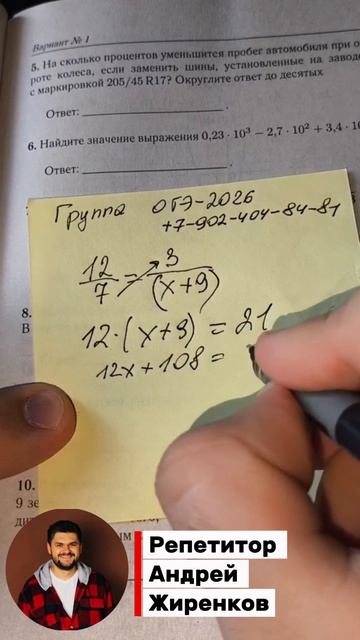 Вариант № 1
5. На сколько процентов уменьшится пробег автомобиля при о
роте колеса, если заменить шины, установленные на заводе
с маркировкой 205/45 R17? Округлите ответ до десятых
Ответ:
6. Найдите значение выражения 0,23 · 10³ − 2,7 · 10² + 3,4 · 10
Ответ:
Группа ОГЭ-2026
+7-902-404-84-81
12/7 = 3/(x+9)
12·(x+9) = 21
12x+108 =
8.
В
10.
9 зе
Репетитор
Андрей
Жиренков